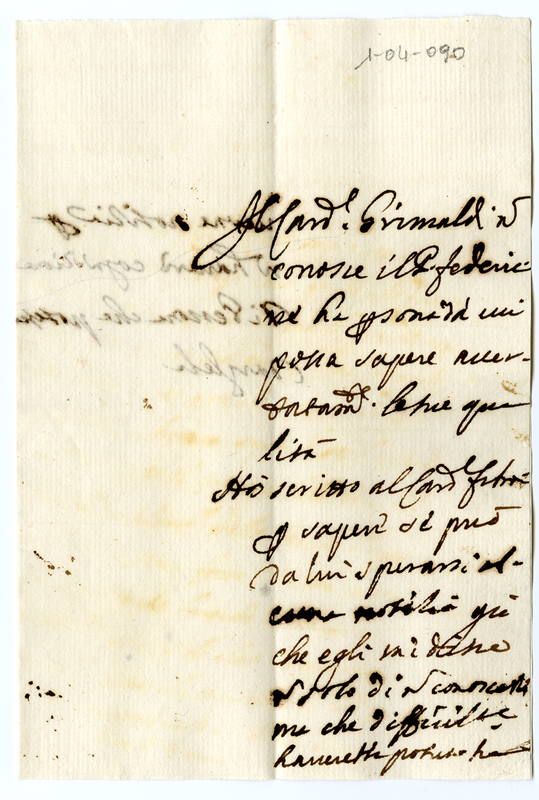 1-04-090
Il Card.l Grimaldi nō
conosce il P. federic
né ha psona dá cui
possa sapere accer-
tatam.te le sue qua
lità
Hò scritto al Card.l
p saper se può
da lui sperarsi al-
cuna notitia già
che egli mi disse
nō solo di nō conoscerli
ma che difficilte
haverette potuto ha